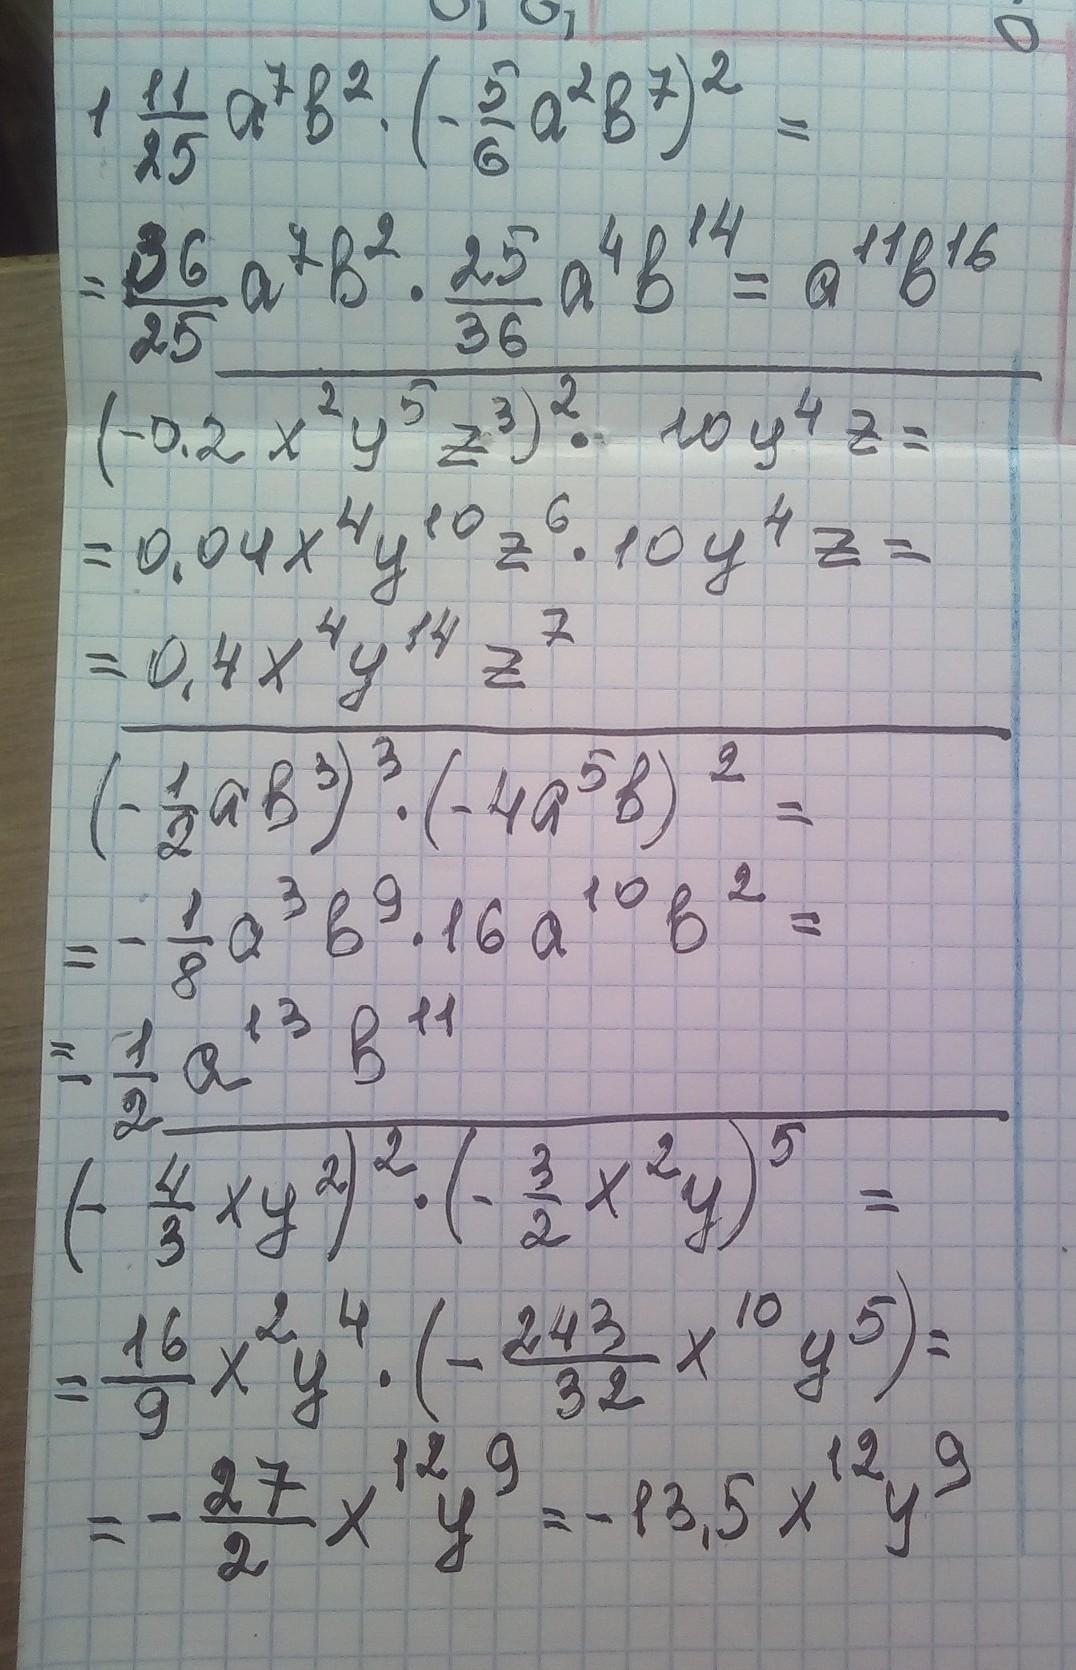 1 11/25 a⁷b² · (- 5/6 a²b⁷)² =
= 36/25 a⁷b² · 25/36 a⁴b¹⁴ = a¹¹b¹⁶
(-0.2 x²y⁵ z³)² · 10y⁴ z =
= 0,04x⁴y¹⁰ z⁶ · 10y⁴ z =
= 0,4x⁴y¹⁴ z⁷
(- 1/2 ab³)³ · (-4a⁵b)² =
= - 1/8 a³b⁹ · 16 a¹⁰ b² =
= - 1/2 a¹³ b¹¹
(- 4/3 xy²)² · (- 3/2 x²y)⁵ =
= 16/9 x²y⁴ · (- 243/32 x¹⁰ y⁵) =
= - 27/2 x¹²y⁹ = -13,5 x¹²y⁹